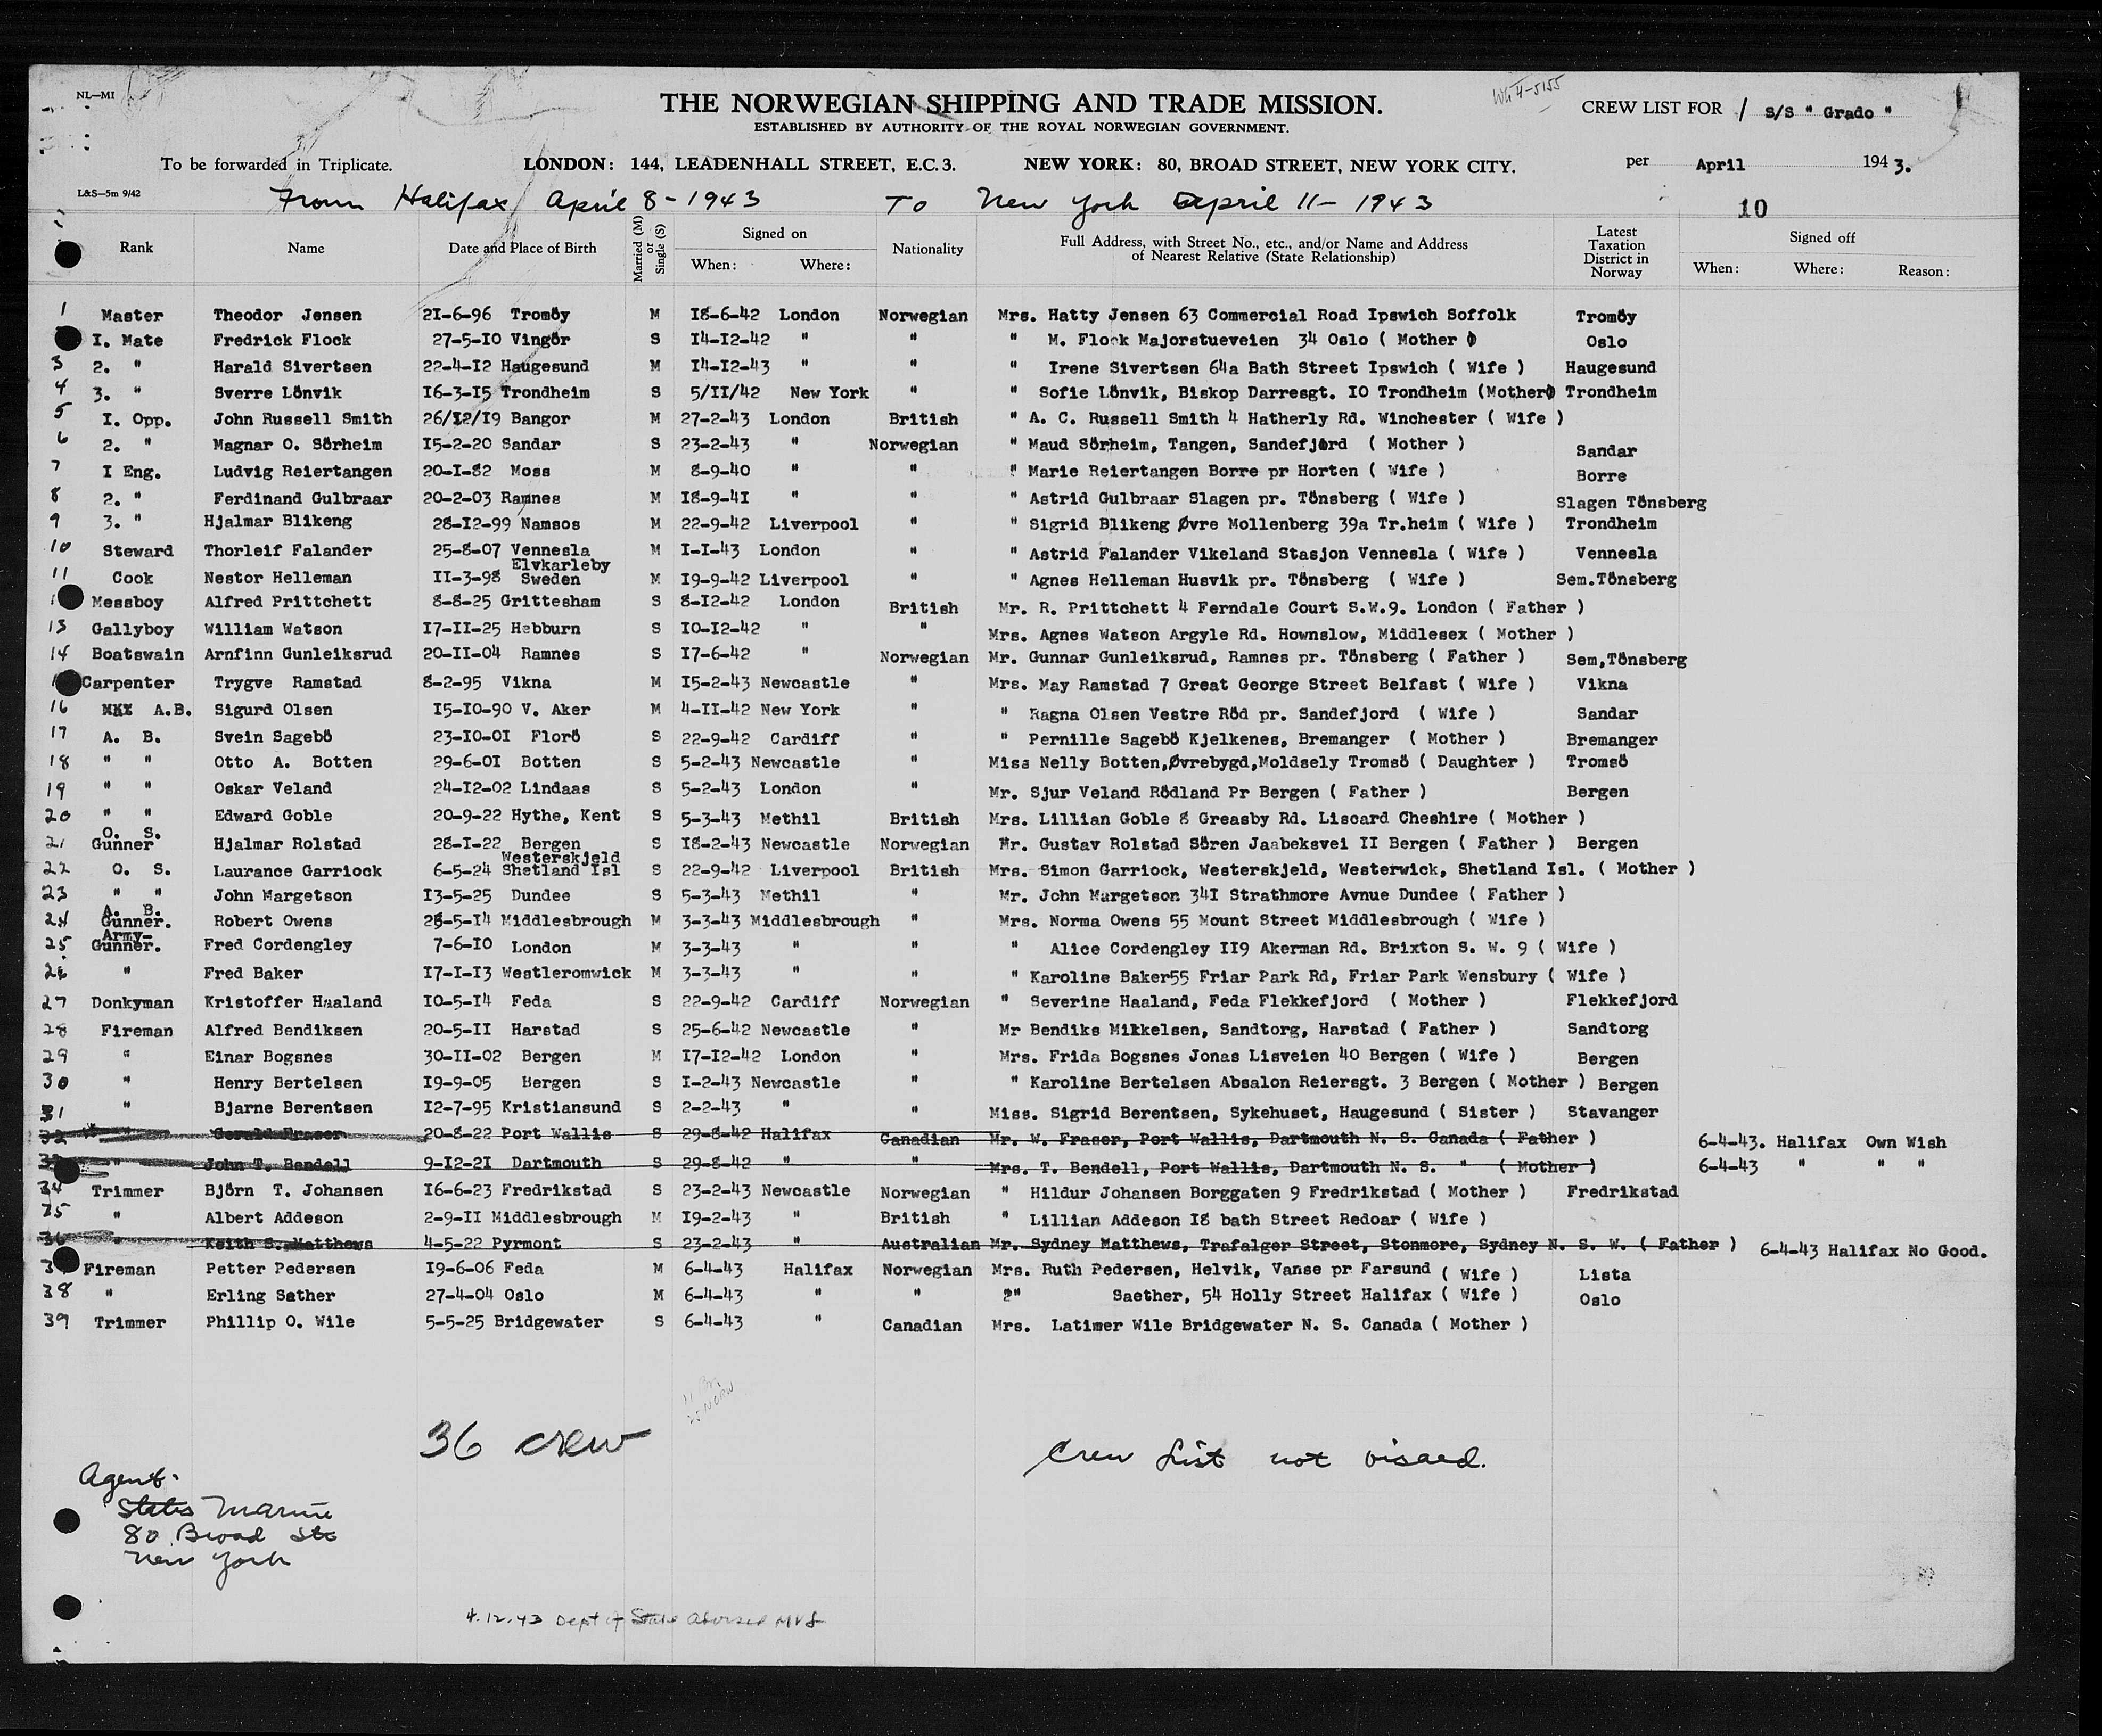 NL—MI
THE NORWEGIAN SHIPPING AND TRADE MISSION.
ESTABLISHED BY AUTHORITY OF THE ROYAL NORWEGIAN GOVERNMENT.
CREW LIST FOR / S/S " Grado "
To be forwarded in Triplicate. LONDON: 144, LEADENHALL STREET, E.C.3. NEW YORK: 80, BROAD STREET, NEW YORK CITY. per April 1943.
L&S—5m 9/42
From Halifax April 8 - 1943 To New York April 11 - 1943
10
Rank Name Date and Place of Birth Married (M) or Single (S) Signed on When: Where: Nationality Full Address, with Street No., etc., and/or Name and Address of Nearest Relative (State Relationship) Latest Taxation District in Norway Signed off When: Where: Reason:
1 Master Theodor Jensen 21-6-96 Tromöy M 18-6-42 London Norwegian Mrs. Hatty Jensen 63 Commercial Road Ipswich Soffolk Tromöy
I. Mate Fredrick Flock 27-5-10 Vingör S 14-12-42 " " " M. Flock Majorstueveien 34 Oslo ( Mother ) Oslo
3 2. " Harald Sivertsen 22-4-12 Haugesund M 14-12-43 " " " Irene Sivertsen 64a Bath Street Ipswich ( Wife ) Haugesund
4 3. " Sverre Lönvik 16-3-15 Trondheim S 5/11/42 New York " " Sofie Lönvik, Biskop Darresgt. 10 Trondheim (Mother) Trondheim
5 I. Opp. John Russell Smith 26/12/19 Bangor M 27-2-43 London British " A. C. Russell Smith 4 Hatherly Rd. Winchester ( Wife )
6 2. " Magnar O. Sörheim 15-2-20 Sandar S 23-2-43 " Norwegian " Maud Sörheim, Tangen, Sandefjord ( Mother ) Sandar
7 I Eng. Ludvig Reiertangen 20-1-82 Moss M 8-9-40 " " " Marie Reiertangen Borre pr Horten ( Wife ) Borre
8 2. " Ferdinand Gulbraar 20-2-03 Ramnes M 18-9-41 " " " Astrid Gulbraar Slagen pr. Tönsberg ( Wife ) Slagen Tönsberg
9 3. " Hjalmar Blikeng 28-12-99 Namsos M 22-9-42 Liverpool " " Sigrid Blikeng Øvre Mollenberg 39a Tr.heim ( Wife ) Trondheim
10 Steward Thorleif Falander 25-8-07 Vennesla M 1-1-43 London " " Astrid Falander Vikeland Stasjon Vennesla ( Wife ) Vennesla
11 Cook Nestor Helleman 11-3-98 Elvkarleby Sweden M 19-9-42 Liverpool " " Agnes Helleman Husvik pr. Tönsberg ( Wife ) Sem.Tönsberg
1 Messboy Alfred Prittchett 8-8-25 Grittesham S 8-12-42 London British Mr. R. Prittchett 4 Ferndale Court S.W.9. London ( Father )
13 Gallyboy William Watson 17-11-25 Hebburn S 10-12-42 " " Mrs. Agnes Watson Argyle Rd. Hownslow, Middlesex ( Mother )
14 Boatswain Arnfinn Gunleiksrud 20-11-04 Ramnes S 17-6-42 " Norwegian Mr. Gunnar Gunleiksrud, Ramnes pr. Tönsberg ( Father ) Sem,Tönsberg
Carpenter Trygve Ramstad 8-2-95 Vikna M 15-2-43 Newcastle " Mrs. May Ramstad 7 Great George Street Belfast ( Wife ) Vikna
16 A.B. Sigurd Olsen 15-10-90 V. Aker M 4-11-42 New York " " Ragna Olsen Vestre Röd pr. Sandefjord ( Wife ) Sandar
17 A. B. Svein Sagebö 23-10-01 Florö S 22-9-42 Cardiff " " Pernille Sagebö Kjelkenes, Bremanger ( Mother ) Bremanger
18 " " Otto A. Botten 29-6-01 Botten S 5-2-43 Newcastle " Miss Nelly Botten,Øvrebygd,Moldsely Tromsö ( Daughter ) Tromsö
19 " " Oskar Veland 24-12-02 Lindaas S 5-2-43 London " Mr. Sjur Veland Rödland Pr Bergen ( Father ) Bergen
20 " " Edward Goble 20-9-22 Hythe, Kent S 5-3-43 Methil British Mrs. Lillian Goble 8 Greasby Rd. Liscard Cheshire ( Mother )
21 O. S. Gunner Hjalmar Rolstad 28-1-22 Bergen S 18-2-43 Newcastle Norwegian Mr. Gustav Rolstad Sören Jaabeksvei II Bergen ( Father ) Bergen
22 O. S. Laurance Garriock 6-5-24 Westerskjeld Shetland Isl S 22-9-42 Liverpool British Mrs. Simon Garriock, Westerskjeld, Westerwick, Shetland Isl. ( Mother )
23 " " John Margetson 13-5-25 Dundee S 5-3-43 Methil " Mr. John Margetson 341 Strathmore Avnue Dundee ( Father )
24 A. B. Gunner. Robert Owens 26-5-14 Middlesbrough M 3-3-43 Middlesbrough " Mrs. Norma Owens 55 Mount Street Middlesbrough ( Wife )
25 Army- Gunner. Fred Cordengley 7-6-10 London M 3-3-43 " " " Alice Cordengley 119 Akerman Rd. Brixton S. W. 9 ( Wife )
26 " Fred Baker 17-1-13 Westleromwick M 3-3-43 " " " Karoline Baker55 Friar Park Rd, Friar Park Wensbury ( Wife )
27 Donkyman Kristoffer Haaland 10-5-14 Feda S 22-9-42 Cardiff Norwegian " Severine Haaland, Feda Flekkefjord ( Mother ) Flekkefjord
28 Fireman Alfred Bendiksen 20-5-11 Harstad S 25-6-42 Newcastle " Mr Bendiks Mikkelsen, Sandtorg, Harstad ( Father ) Sandtorg
29 " Einar Bogsnes 30-11-02 Bergen M 17-12-42 London " Mrs. Frida Bogsnes Jonas Lisveien 40 Bergen ( Wife ) Bergen
30 " Henry Bertelsen 19-9-05 Bergen S 1-2-43 Newcastle " " Karoline Bertelsen Absalon Reiersgt. 3 Bergen ( Mother ) Bergen
31 " Bjarne Berentsen 12-7-95 Kristiansund S 2-2-43 " " Miss. Sigrid Berentsen, Sykehuset, Haugesund ( Sister ) Stavanger
32 " Gerald Fraser 20-8-22 Port Wallis S 29-8-42 Halifax Canadian Mr. W. Fraser, Port Wallis, Dartmouth N. S. Canada ( Father ) 6-4-43. Halifax Own Wish
33 " John T. Bendell 9-12-21 Dartmouth S 29-8-42 " " Mrs. T. Bendell, Port Wallis, Dartmouth N. S. " ( Mother ) 6-4-43 " " "
34 Trimmer Björn T. Johansen 16-6-23 Fredrikstad S 23-2-43 Newcastle Norwegian " Hildur Johansen Borggaten 9 Fredrikstad ( Mother ) Fredrikstad
35 " Albert Addeson 2-9-11 Middlesbrough M 19-2-43 " British " Lillian Addeson 18 bath Street Redoar ( Wife )
36 " Keith S. Matthews 4-5-22 Pyrmont S 23-2-43 " Australian Mr. Sydney Matthews, Trafalger Street, Stonmore, Sydney N. S. W. ( Father ) 6-4-43 Halifax No Good.
3 Fireman Petter Pedersen 19-6-06 Feda M 6-4-43 Halifax Norwegian Mrs. Ruth Pedersen, Helvik, Vanse pr Farsund ( Wife ) Lista
38 " Erling Sather 27-4-04 Oslo M 6-4-43 " " " Saether, 54 Holly Street Halifax ( Wife ) Oslo
39 Trimmer Phillip O. Wile 5-5-25 Bridgewater S 6-4-43 " Canadian Mrs. Latimer Wile Bridgewater N. S. Canada ( Mother )
36 crew
Crew List not visaed.
Agent:
States Marine
80 Broad St
New York
4.12.43 Dept of State advised